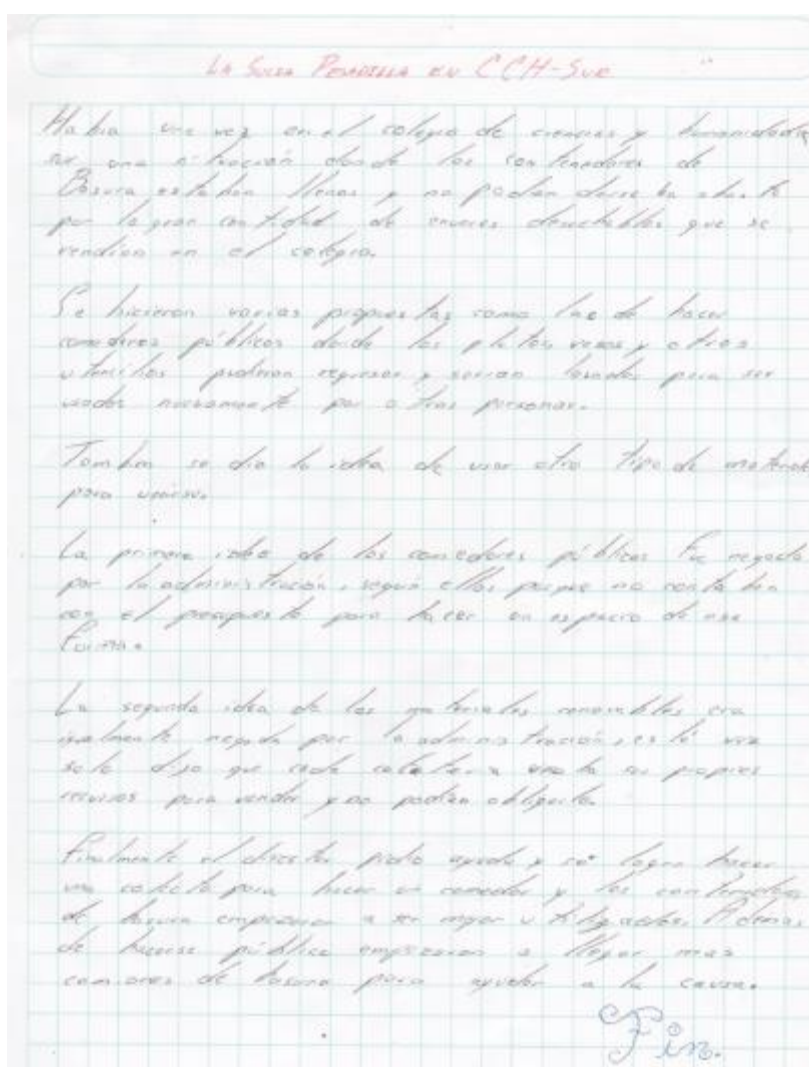 La Sucia Pesadilla en CCH-Sur "
Había una vez en el colegio de ciencias y humanidades
sur una situación donde los contenedores de
Basura estaban llenos y no podían darse a basto
por la gran cantidad de envases desechables que se
vendían en el colegio.
Se hicieron varias propuestas como las de hacer
comedores públicos donde los platos, vasos y otros
utencilios pudieran regresar y serían lavados para ser
usados nuevamente por otras personas.
Tambien se dio la idea de usar otro tipo de material
para
La primera idea de los comedores públicos fue negada
por la administración, según ellos porque no contaban
con el presupuesto para hacer un espacio de esa
forma.
La segunda idea de los materiales renovables era
igualmente negada por la administración, está vez
solo dijo que cada cafetería a sus propios
recursos para vender y no podían obligarlos.
Finalmente el director pidio ayuda y se logro hacer
una colecta para hacer un comedor y los contenedores
de basura empezaron a ser mejor utilizados. Ademas
de hacerse público empezaron a llegar mas
camiones de basura para ayudar a la causa.
Fin.